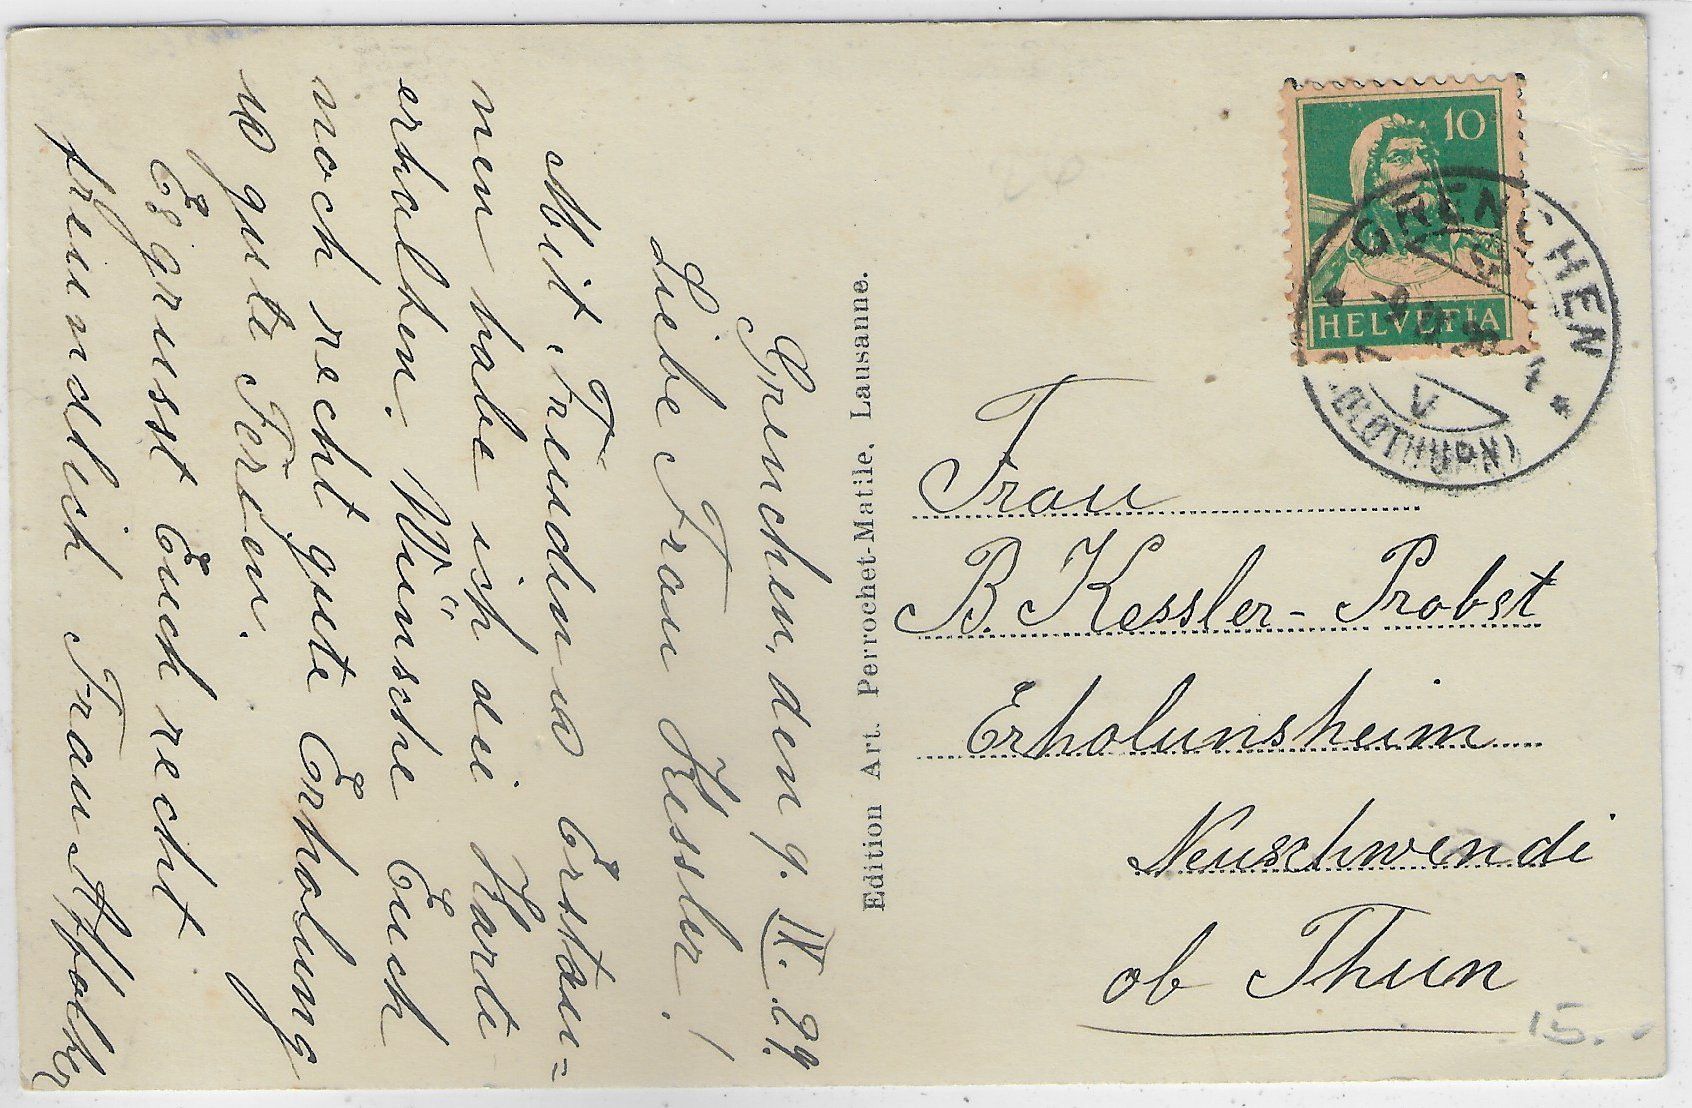 Grenchen, den 9. IX. 29.
Liebe Frau Kessler!
Mit Freuden u Erstau=
nen habe ich die Karte
erhalten. Wünsche Euch
noch recht gute Erholung
u gute Ferien.
Es grüsst Euch recht
freundlich Frau Affolter
Edition Art. Perrochet-Matile, Lausanne.
10
HELVETIA
GRENCHEN
(SOLOTHURN)
Frau
B. Kessler-Probst
Erholunsheim
Neuschwendi
ob Thun
15.-